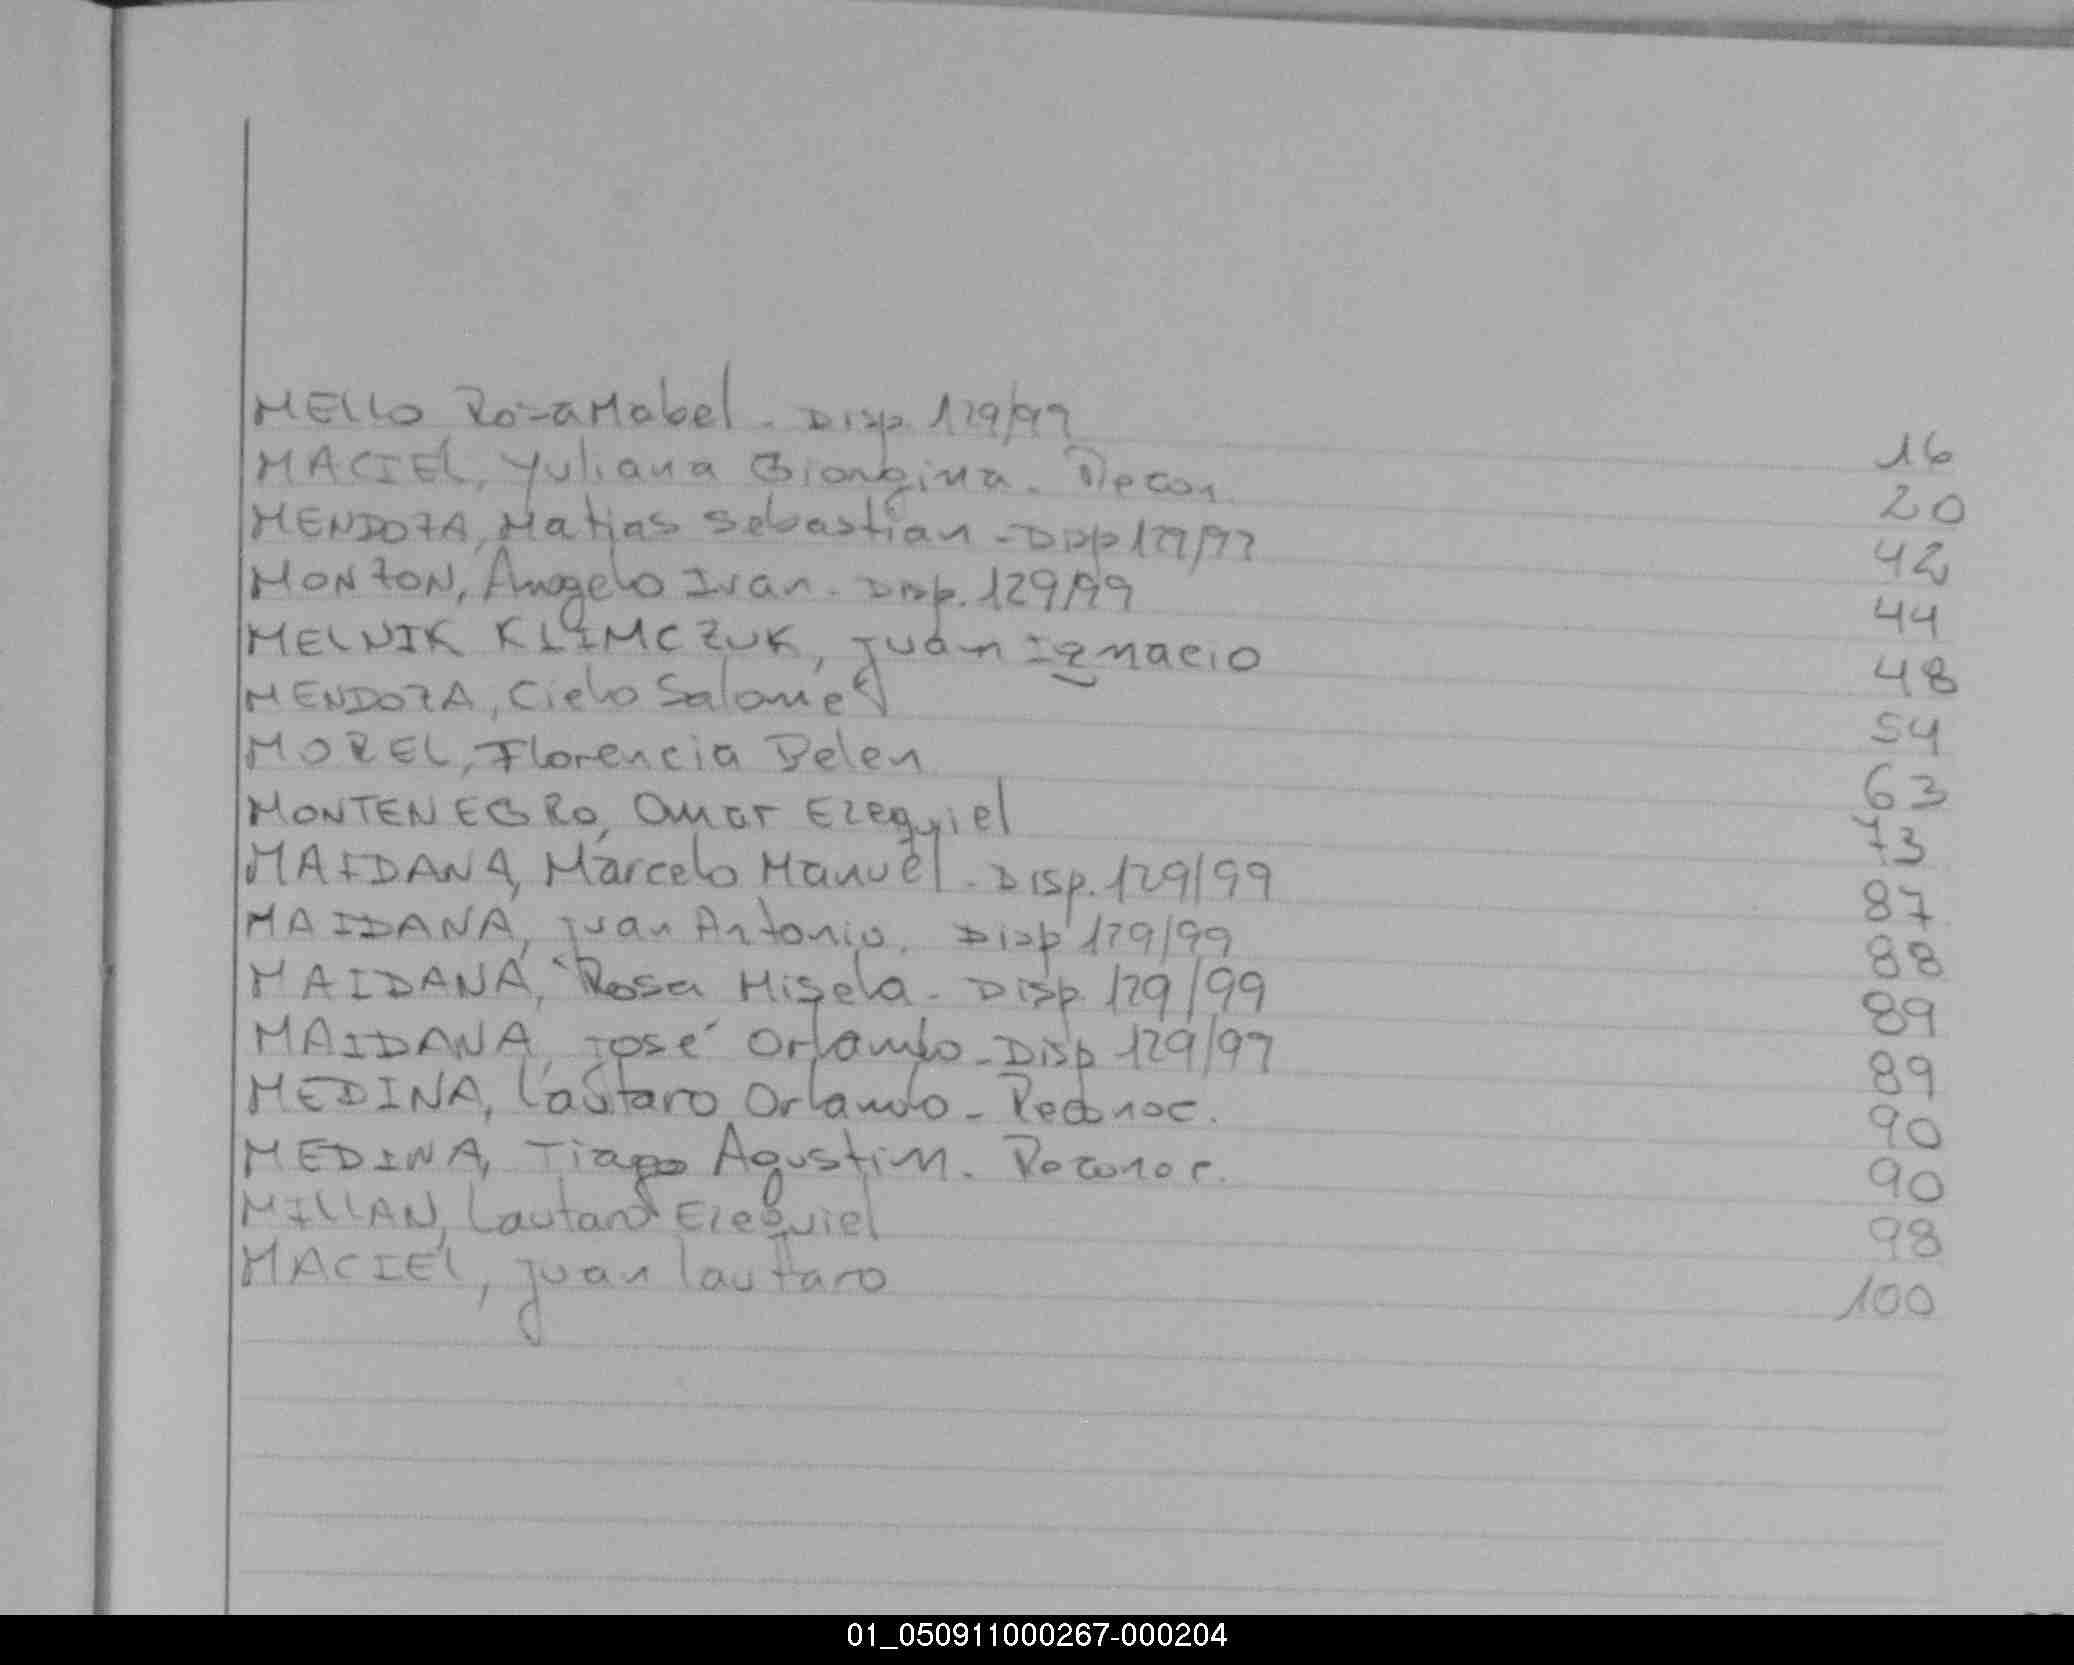 MELLO Rosa Mabel. Disp. 129/99 16
MACIEL, Yuliana Giorgina. Recon. 20
MENDOZA, Matias Sebastian - Disp 129/99 42
MONZON, Angelo Ivan. Disp. 129/99 44
MELNIK KLIMCZUK, Juan Ignacio 48
MENDOZA, Cielo Salomé 54
MOREL, Florencia Belen 63
MONTENEGRO, Omar Ezequiel 73
MAIDANA, Marcelo Manuel - Disp. 129/99 87
MAIDANA, Juan Antonio. Disp 129/99 88
MAIDANA, Rosa Misela - Disp. 129/99 89
MAIDANA, José Orlando - Disp 129/99 89
MEDINA, Lautaro Orlando - Reconoc. 90
MEDINA, Tiago Agustin. Reconoc. 90
MILLAN, Lautaro Ezequiel 98
MACIEL, Juan Lautaro 100
01_050911000267-000204